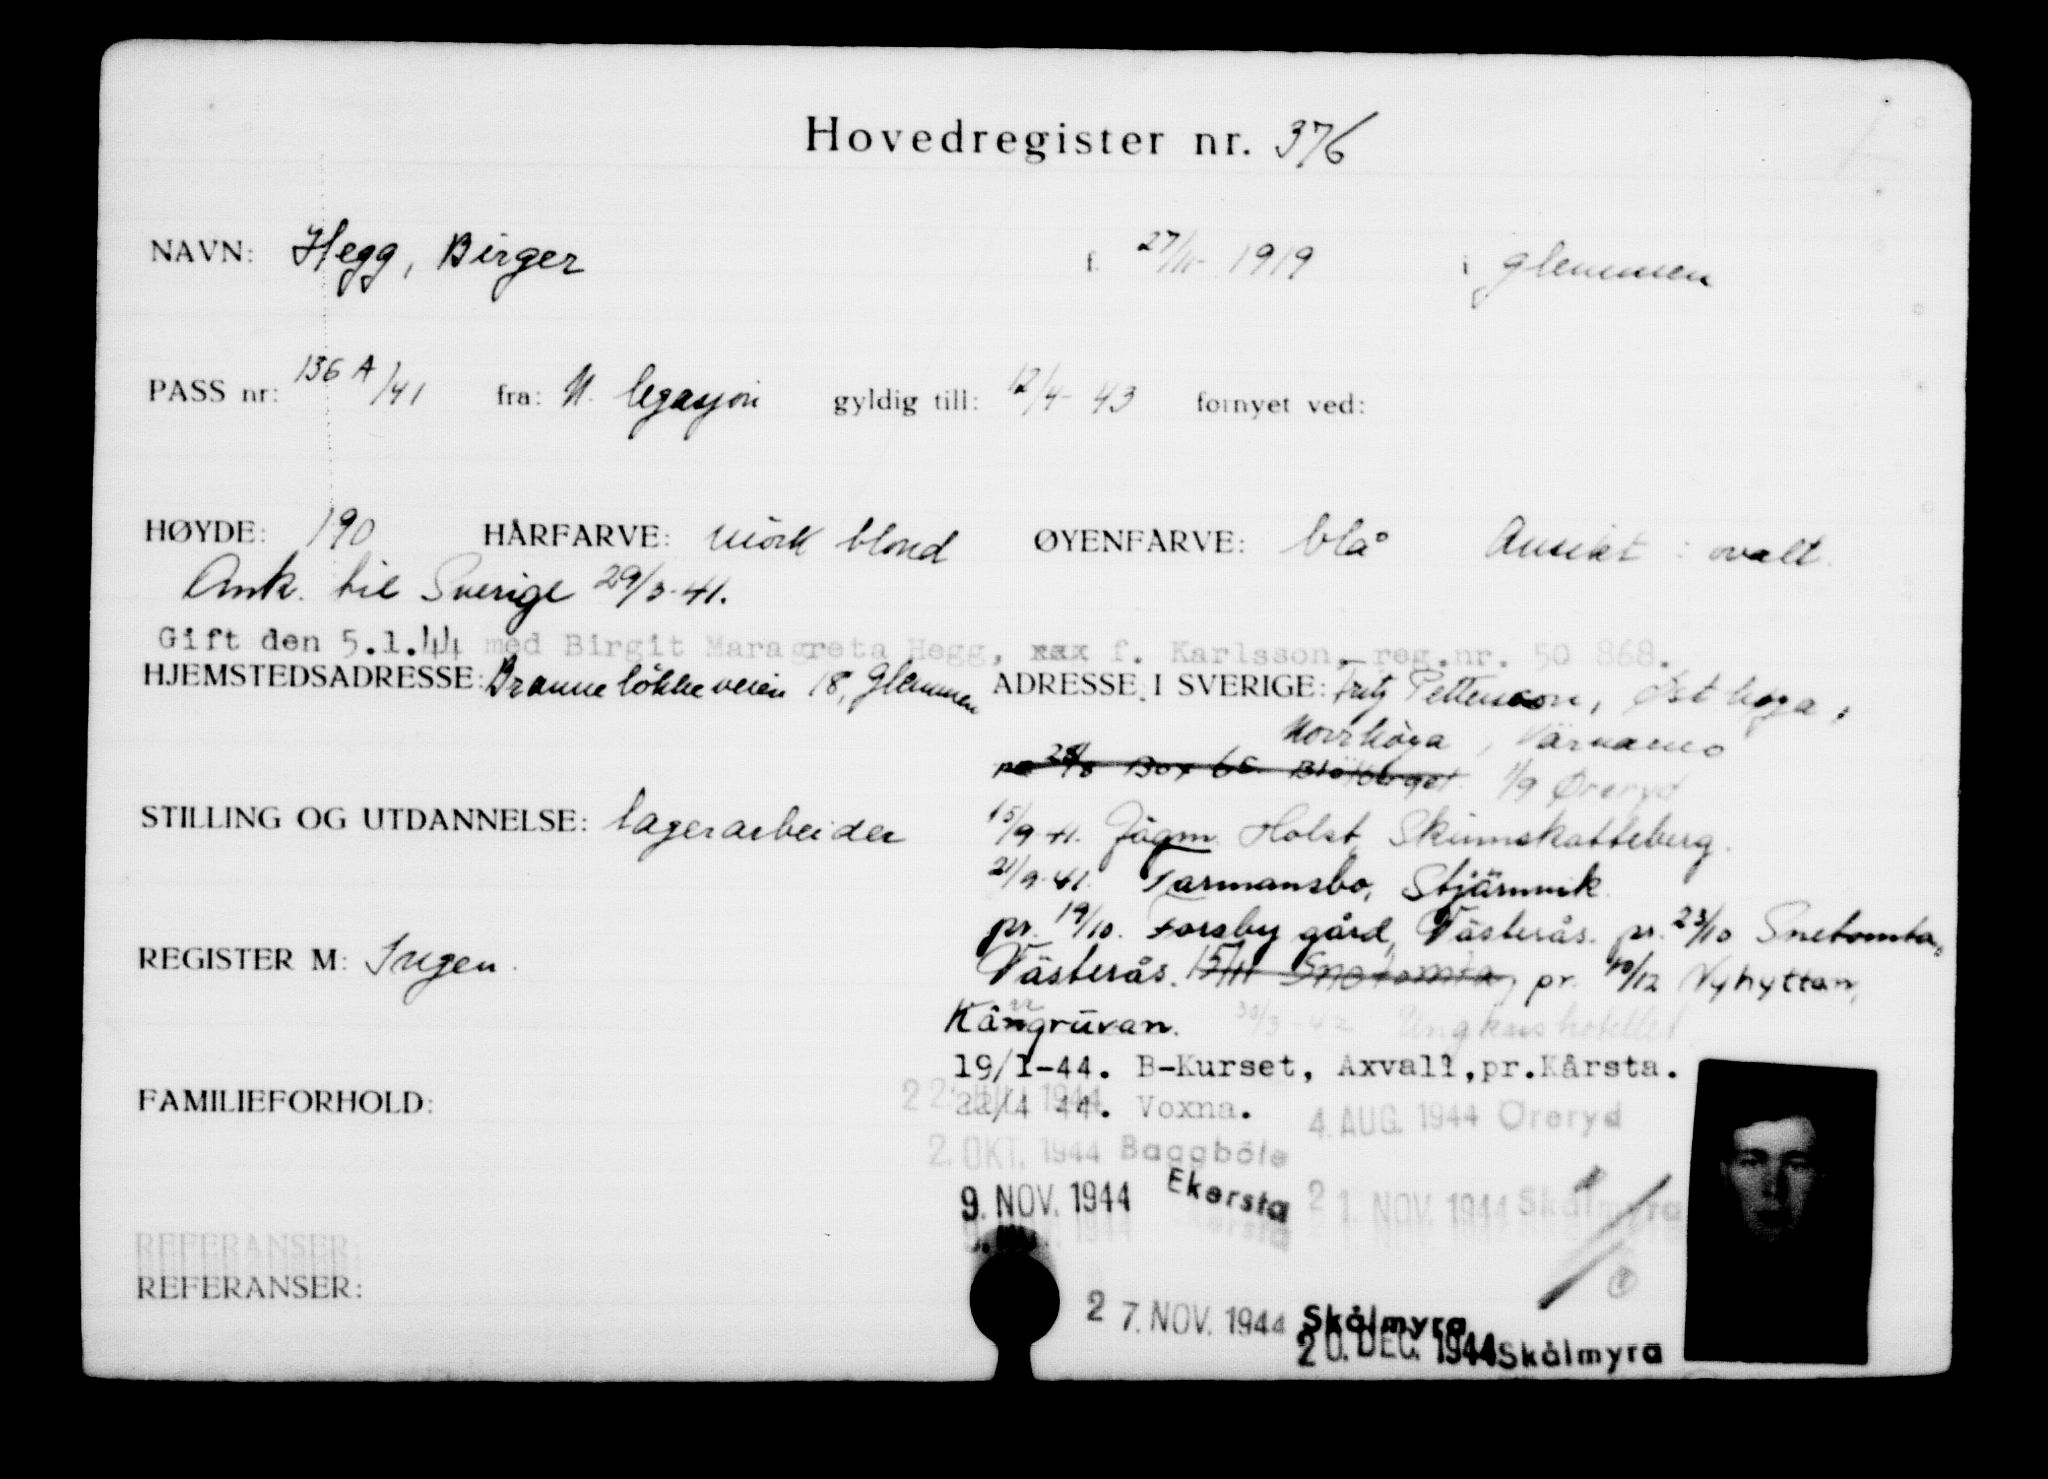 Hovedregister nr. 376
NAVN: Hegg, Birger f. 27/11- 1919 i Glemmen
PASS nr: 136 A/41 fra: N. legasjon gyldig till: 12/4- 43 fornyet ved:
HØYDE: 190 HÅRFARVE: mörk blond ØYENFARVE: blå Ansikt: ovalt.
Ank. til Sverige 29/3-41.
Gift den 5.1.44 med Birgit Maragreta Hegg, xax f. Karlsson, reg.nr. 50 868.
HJEMSTEDSADRESSE: Brannelökkeveien 18, Glemmen
ADRESSE I SVERIGE: Fritz Petterson,
Norrhöga, Värnamo
Box 65 1/9 Öreryd
STILLING OG UTDANNELSE: lagerarbeider
15/9-41. Jägm. Holst, Skinnskatteberg.
21/9-41. Farmansbo, Stjärnvik.
pr. 19/10. Forsby gård, Västerås. pr. 23/10 Snetomta,
Västerås. 15/11 Snetomta, pr. 10/12 Nyhyttan,
REGISTER M: Ingen.
Kärrgruvan. 30/3-42 Ungkarshotellet
19/1-44. B-Kurset, Axvall, pr. Kårsta.
FAMILIEFORHOLD:
22/4 44. Voxna. 4. AUG. 1944 Öreryd
2. OKT. 1944 Baggböle
9. NOV. 1944 Ekersta 21. NOV. 1944 Skålmyra
REFERANSER:
REFERANSER:
27. NOV. 1944 Skålmyra
20. DEC. 1944 Skålmyra